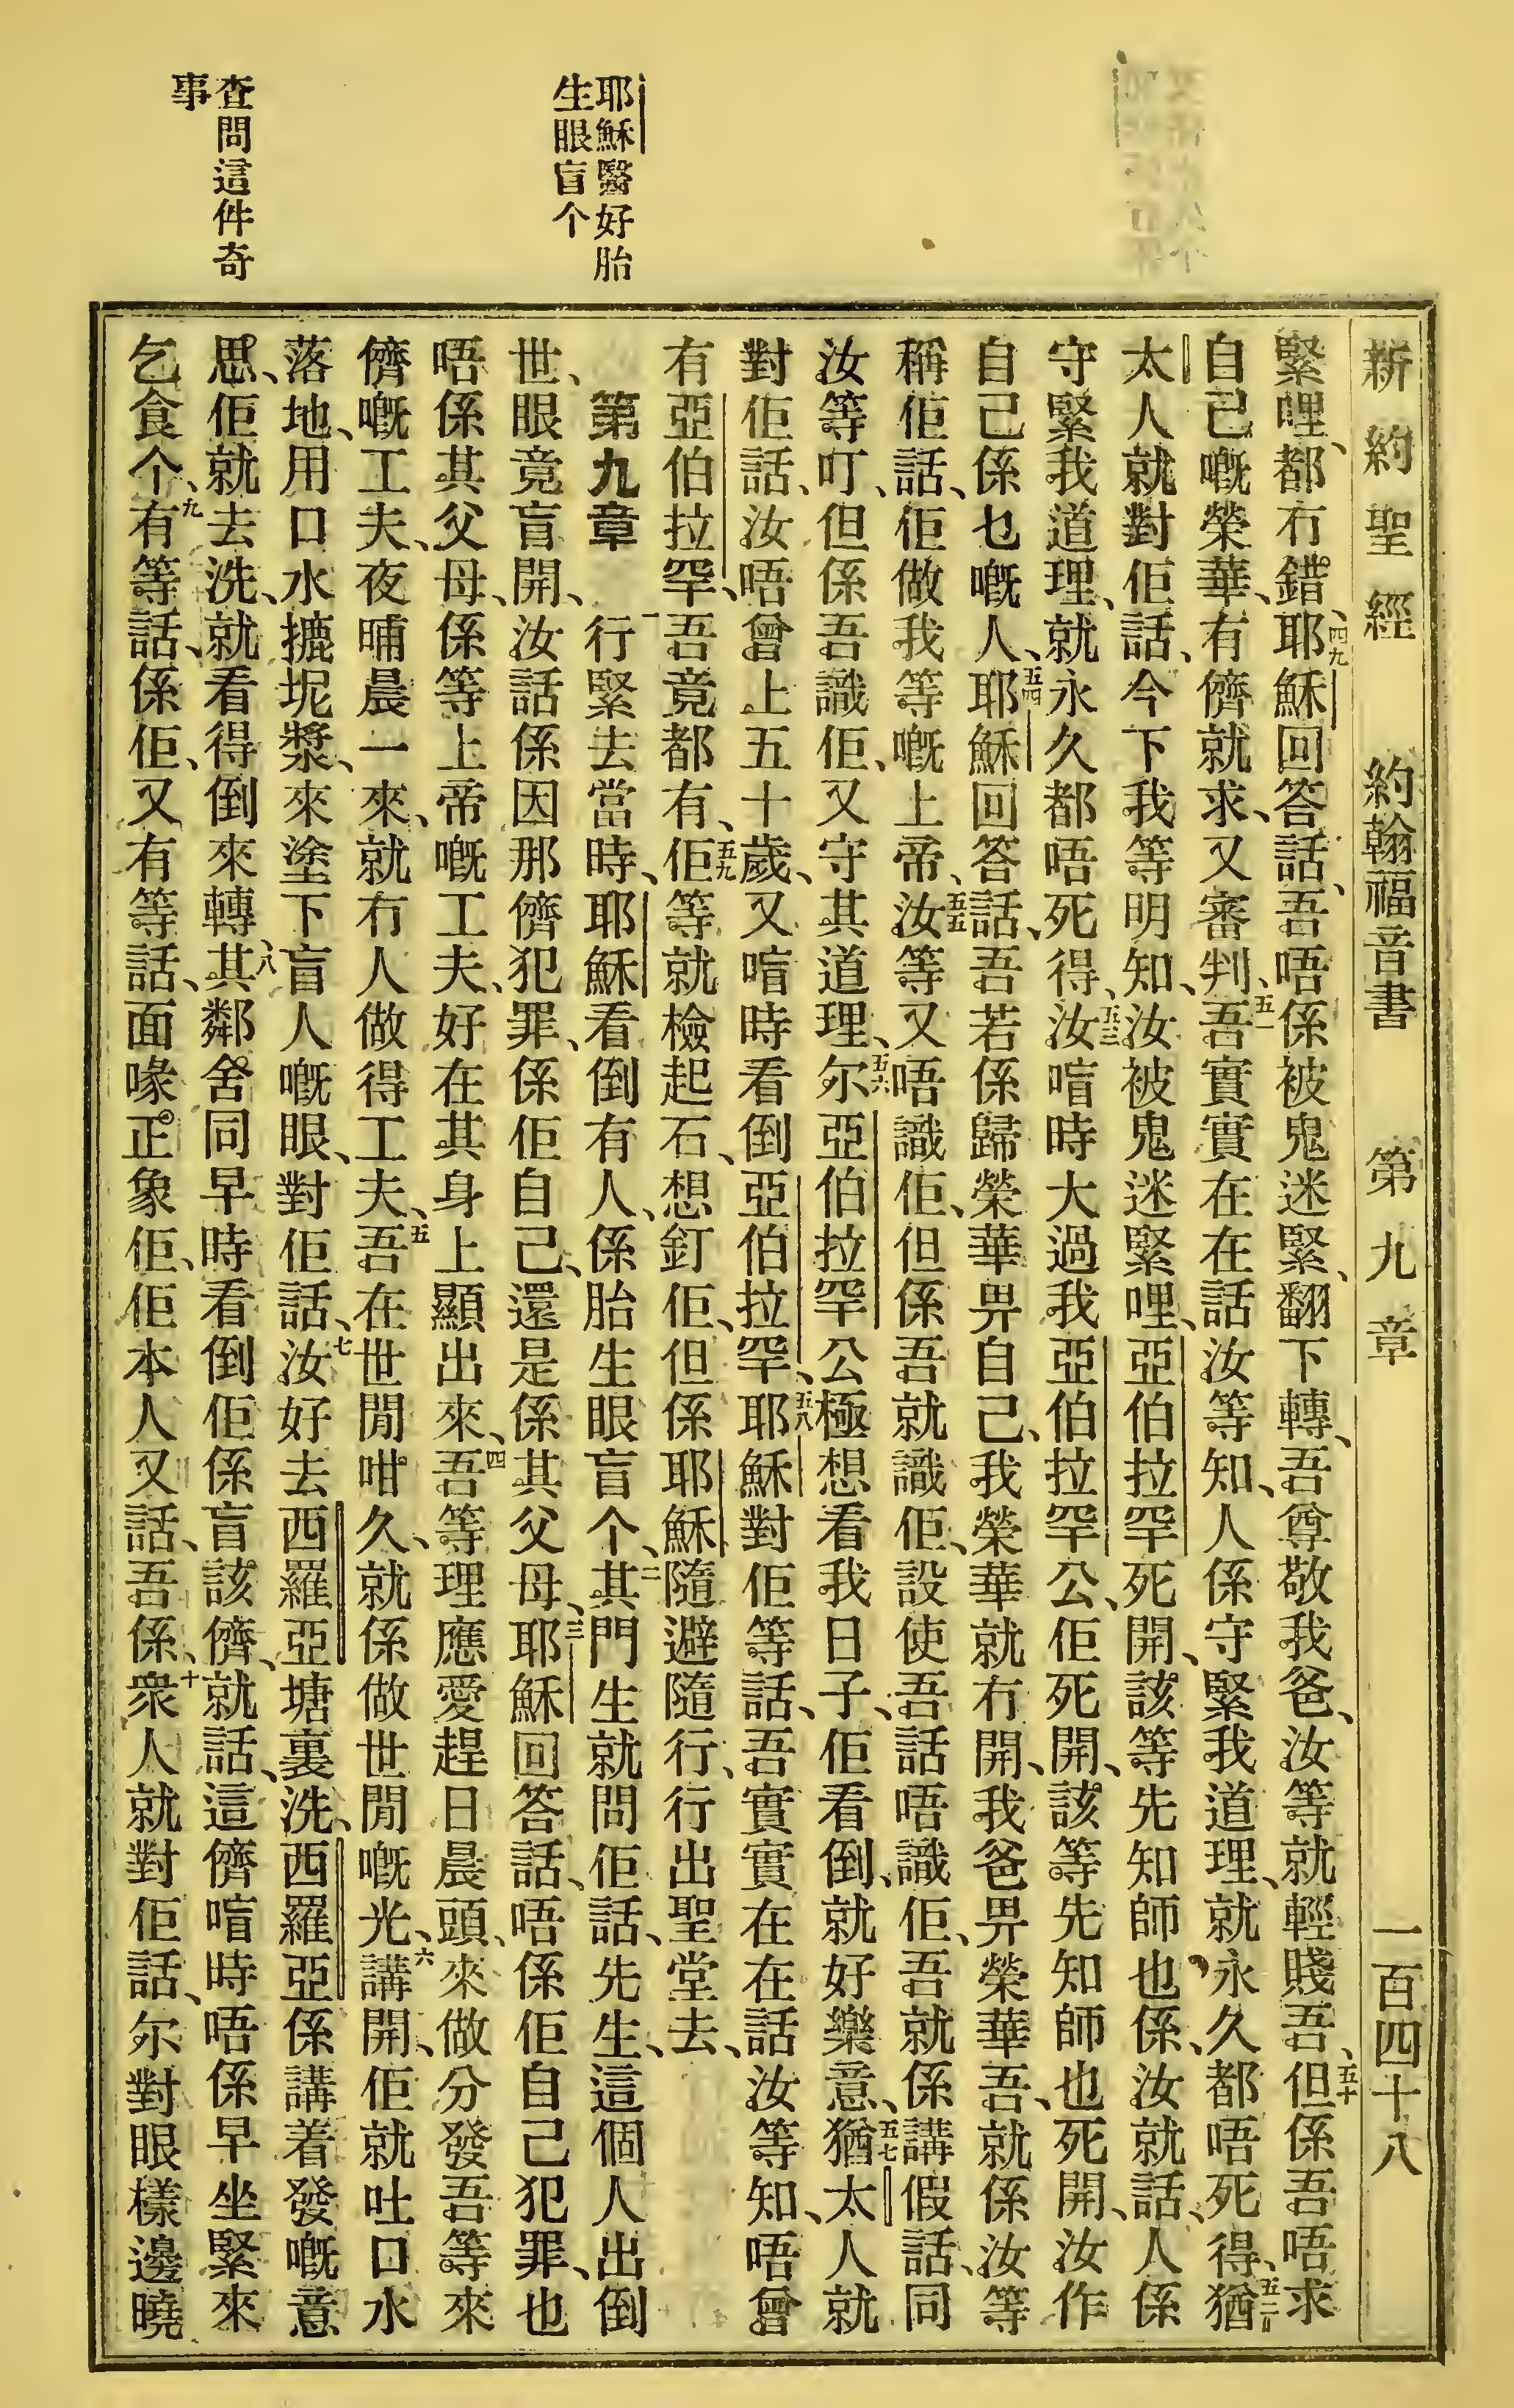 新約聖經　約翰福音書　第九章　一百四十八
緊哩、都冇錯、四九耶穌回答話、吾唔係被鬼迷緊、翻下轉、吾尊敬我爸、汝等就輕賤吾、五十但係吾唔求
自己嘅榮華、有儕就求、又審判、五一吾實實在在話汝等知、人係守緊我道理、就永久都唔死得、五二猶
太人就對佢話、今下我等明知、汝被鬼迷緊哩、亞伯拉罕死開、該等先知師也係、汝就話、人係
守緊我道理、就永久都唔死得、五三汝喑時大過我亞伯拉罕公、佢死開、該等先知師也死開、汝作
自己係乜嘅人、五四耶穌回答話、吾若係歸榮華畀自己、我榮華就冇開、我爸畀榮華吾、就係汝等
稱佢話、佢做我等嘅上帝、五五汝等又唔識佢、但係吾就識佢、設使吾話唔識佢、吾就係講假話、同
汝等叮、但係吾識佢、又守其道理、五六尔亞伯拉罕公極想看我日子、佢看倒、就好樂意、五七猶太人就
對佢話、汝唔曾上五十歲、又喑時看倒亞伯拉罕、五八耶穌對佢等話、吾實實在在話汝等知、唔曾
有亞伯拉罕、吾竟都有、五九佢等就檢起石、想釘佢、但係耶穌隨避隨行、行出聖堂去、
耶穌醫好胎
生眼盲个
第九章　一行緊去當時、耶穌看倒有人、係胎生眼盲个、二其門生就問佢話、先生、這個人出倒
世、眼竟盲開、汝話係因那儕犯罪、係佢自己、還是係其父母、三耶穌回答話、唔係佢自己犯罪、也
唔係其父母、係等上帝嘅工夫、好在其身上顯出來、四吾等理應愛趕日晨頭、來做分發吾等來
儕嘅工夫、夜晡晨一來、就冇人做得工夫、五吾在世閒咁久、就係做世閒嘅光、六講開、佢就吐口水
落地、用口水摝坭漿、來塗下盲人嘅眼、對佢話、七汝好去西羅亞塘裏洗、西羅亞係講着發嘅意
思、佢就去洗、就看得倒來轉、八其鄰舍同早時看倒佢係盲該儕、就話、這儕喑時唔係早坐緊來
查問這件奇
事
乞食个、九有等話、係佢、又有等話、面喙正象佢、佢本人又話、吾係、十衆人就對佢話、尔對眼樣邊曉